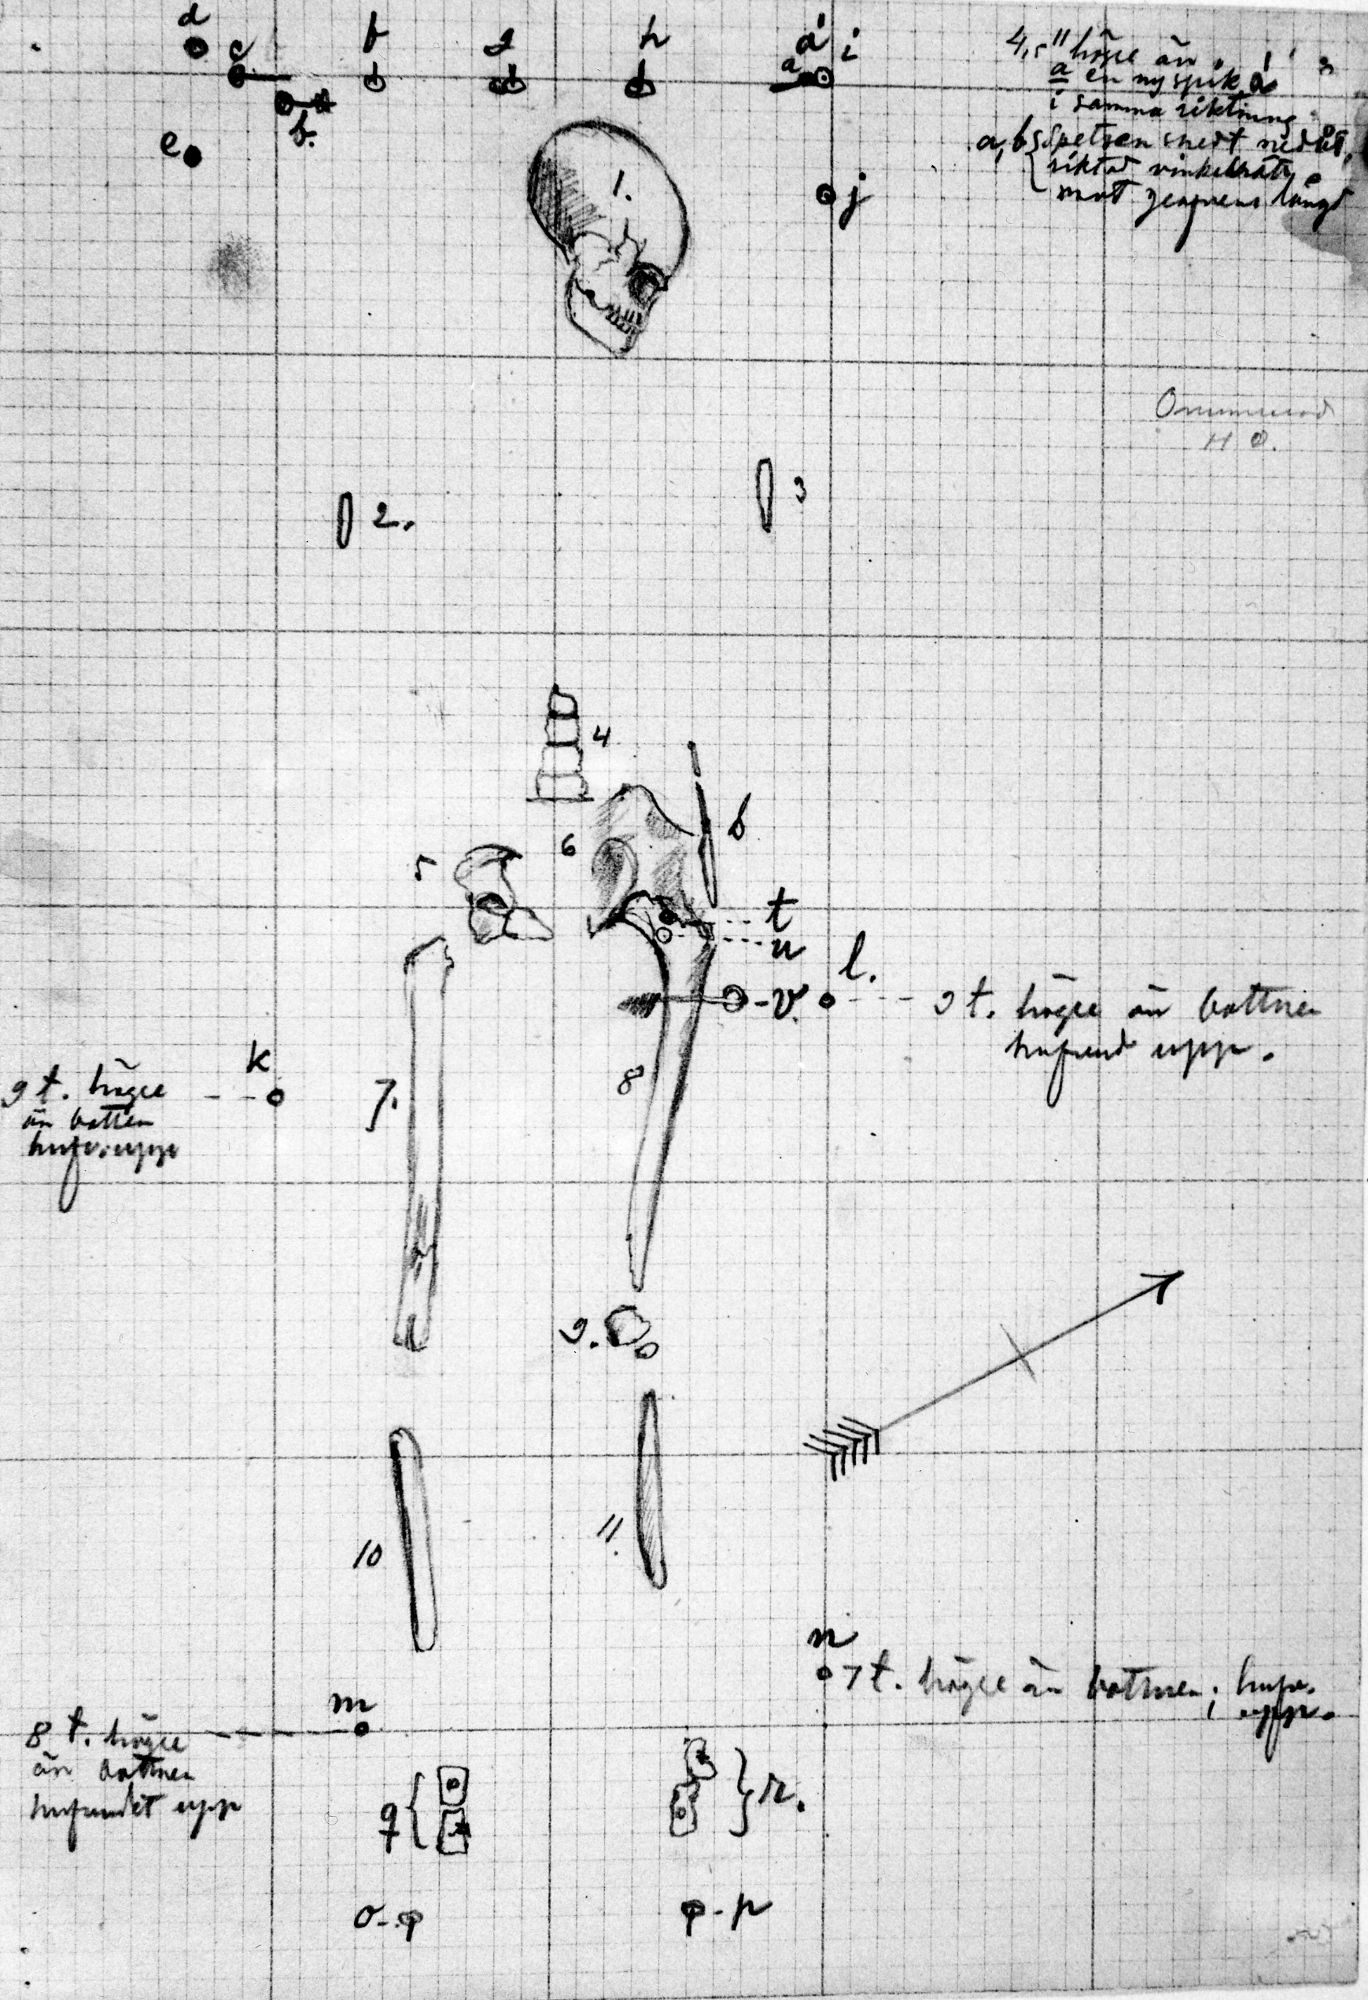 d
c
f
g
h
a' i
a
b.
e
j
1.
4,5" högre än
a en ny spik á
i samma riktning
a, b spetsen snedt nedåt,
riktad vinkelrätt
mot gravens längd
2.
3
4
5
6
s
t
u
v.
l.
9 t. högre än bottnen
hufvud upp.
k
9 t. högre
än botten
hufv. upp
7.
8
9.
10
11.
n
7 t. högre än bottnen; hufv.
upp.
m
8 t. högre
än bottnen
hufvudet upp
q
r.
o-
-p